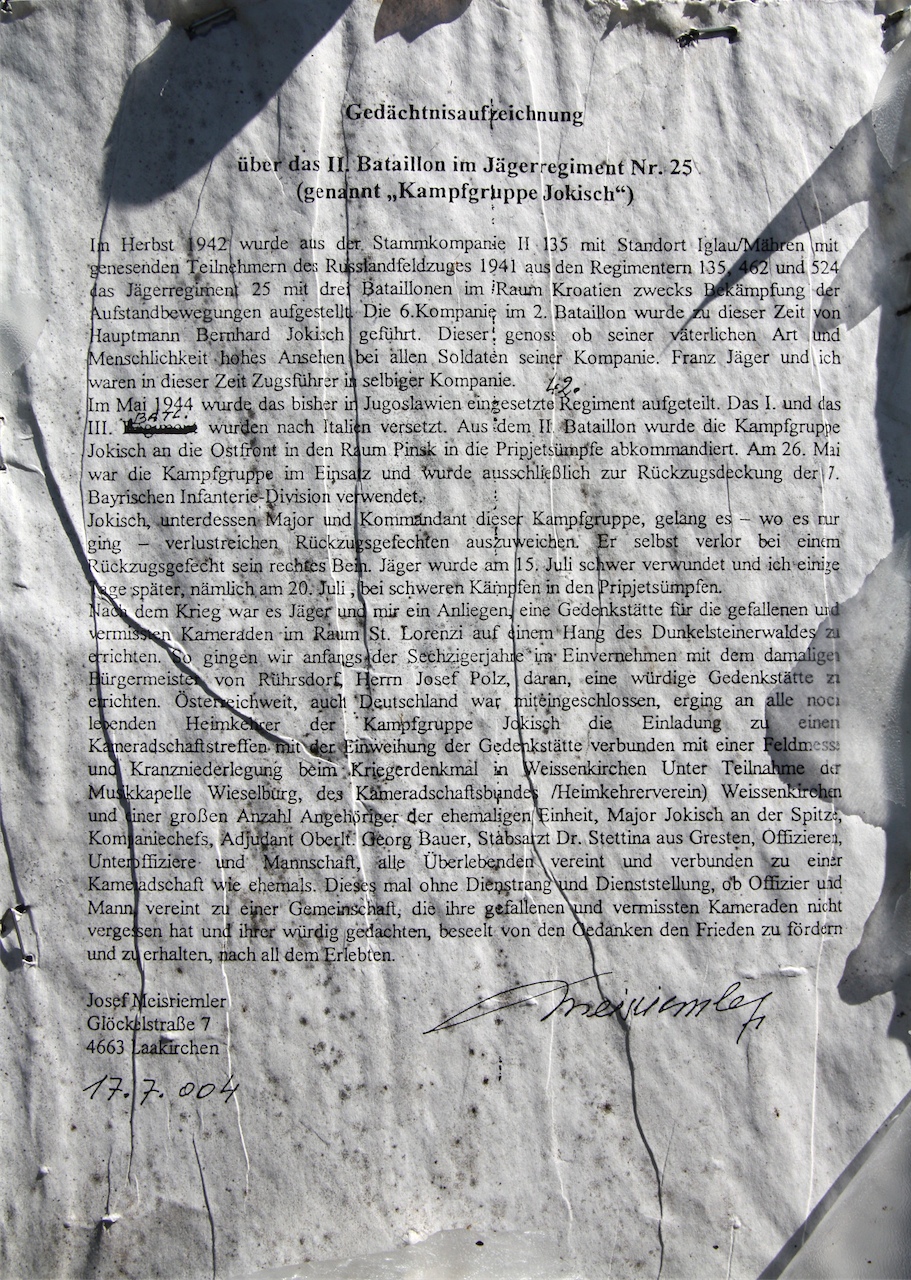 Gedächtnisaufzeichnung
über das II. Bataillon im Jägerregiment Nr. 25
(genannt „Kampfgruppe Jokisch“)
Im Herbst 1942 wurde aus der Stammkompanie II 135 mit Standort Iglau/Mähren mit
genesenden Teilnehmern des Russlandfeldzuges 1941 aus den Regimentern 135, 462 und 524
das Jägerregiment 25 mit drei Bataillonen im Raum Kroatien zwecks Bekämpfung der
Aufstandbewegungen aufgestellt. Die 6.Kompanie im 2. Bataillon wurde zu dieser Zeit von
Hauptmann Bernhard Jokisch geführt. Dieser genoss ob seiner väterlichen Art und
Menschlichkeit hohes Ansehen bei allen Soldaten seiner Kompanie. Franz Jäger und ich
waren in dieser Zeit Zugsführer in selbiger Kompanie.
42.
Im Mai 1944 wurde das bisher in Jugoslawien eingesetzte Regiment aufgeteilt. Das I. und das
III. BATL. wurden nach Italien versetzt. Aus dem II. Bataillon wurde die Kampfgruppe
Jokisch an die Ostfront in den Raum Pinsk in die Pripjetsümpfe abkommandiert. Am 26. Mai
war die Kampfgruppe im Einsatz und wurde ausschließlich zur Rückzugsdeckung der 7.
Bayrischen Infanterie-Division verwendet.
Jokisch, unterdessen Major und Kommandant dieser Kampfgruppe, gelang es – wo es nur
ging – verlustreichen Rückzugsgefechten auszuweichen. Er selbst verlor bei einem
Rückzugsgefecht sein rechtes Bein. Jäger wurde am 15. Juli schwer verwundet und ich einige
Tage später, nämlich am 20. Juli , bei schweren Kämpfen in den Pripjetsümpfen.
Nach dem Krieg war es Jäger und mir ein Anliegen, eine Gedenkstätte für die gefallenen und
vermissten Kameraden im Raum St. Lorenzi auf einem Hang des Dunkelsteinerwaldes zu
errichten. So gingen wir anfangs der Sechzigerjahre im Einvernehmen mit dem damaligen
Bürgermeister von Rührsdorf, Herrn Josef Polz, daran, eine würdige Gedenkstätte zu
errichten. Österreichweit, auch Deutschland war miteingeschlossen, erging an alle noch
lebenden Heimkehrer der Kampfgruppe Jokisch die Einladung zu einen
Kameradschaftstreffen mit der Einweihung der Gedenkstätte verbunden mit einer Feldmesse
und Kranzniederlegung beim Kriegerdenkmal in Weissenkirchen Unter Teilnahme der
Musikkapelle Wieselburg, des Kameradschaftsbundes /Heimkehrerverein) Weissenkirchen
und einer großen Anzahl Angehöriger der ehemaligen Einheit, Major Jokisch an der Spitze,
Kompaniechefs, Adjudant Oberlt. Georg Bauer, Stabsarzt Dr. Stettina aus Gresten, Offizieren,
Unteroffiziere und Mannschaft, alle Überlebenden vereint und verbunden zu einer
Kameradschaft wie ehemals. Dieses mal ohne Dienstrang und Dienststellung, ob Offizier und
Mann vereint zu einer Gemeinschaft, die ihre gefallenen und vermissten Kameraden nicht
vergessen hat und ihrer würdig gedachten, beseelt von den Gedanken den Frieden zu fördern
und zu erhalten, nach all dem Erlebten.
Josef Meisriemler
Meisriemler
Glöckelstraße 7
4663 Laakirchen
17.7.004